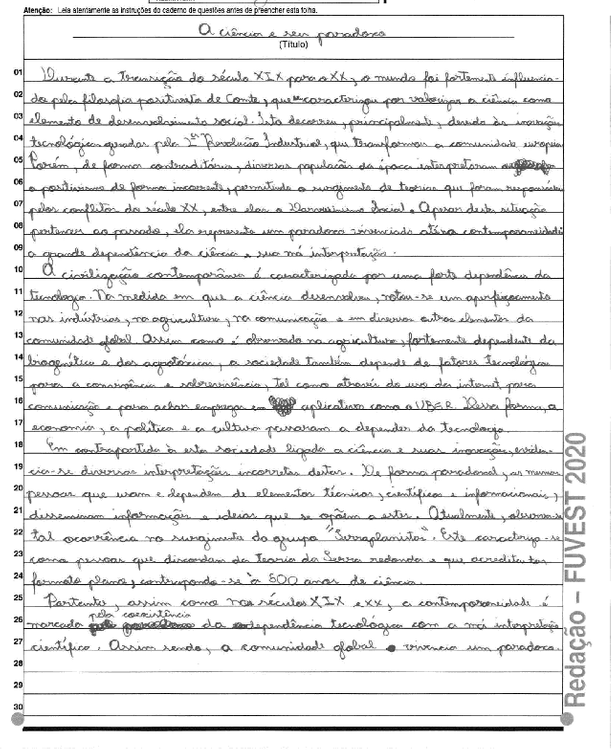 Atenção: Leia atentamente as instruções do caderno de questões antes de preencher esta folha.
A ciência e seu paradoxo
(Título)
01 Durante a transição do século XIX para o XX, o mundo foi fortemente influencia-
02 do pela filosofia positivista de Comte, que caracterizou por valorizar a ciência como
03 elemento de desenvolvimento social. Isto decorreu, principalmente, devido às inovações
04 tecnológicas geradas pela 2ª Revolução Industrial, que transformou a comunidade europeia
05 Porém, de forma contraditória, diversas populações da época interpretaram
06 o positivismo de forma incorreta, permitindo o surgimento de teorias que foram responsáveis
07 pelos conflitos do século XX, entre elas o Darwinismo Social. Apesar desta situação
08 pertencer ao passado, ela representa um paradoxo vivenciado até a contemporaneidade
09 a grande dependência da ciência e sua má interpretação.
10 A civilização contemporânea é caracterizada por uma forte dependência da
11 tecnologia. Na medida em que a ciência desenvolveu, notou-se um aperfeiçoamento
12 nas indústrias, na agricultura, na comunicação e em diversos outros elementos da
13 comunidade global. Assim como é observado na agricultura, fortemente dependente da
14 biogenética e dos agrotóxicos, a sociedade também depende de fatores tecnológicos
15 para a convivência e sobrevivência, tal como através do uso da internet, para
16 comunicação e para achar empregos em aplicativos como o UBER. Dessa forma, a
17 economia, a política e a cultura passaram a depender da tecnologia.
18 Em contrapartida à esta sociedade ligada a ciência e suas inovações, eviden-
19 cia-se diversas interpretações incorretas destas. De forma paradoxal, as mesmas
20 pessoas que usam e dependem de elementos técnicos, científicos e informacionais,
21 disseminam informações e ideias que se opõem a estes. Atualmente, observa-se
22 tal ocorrência no surgimento do grupo "Terraplanistas". Este caracteriza-se
23 como pessoas que discordam da teoria da Terra redonda e que acredita no
24 formato plano, contrapondo-se à 500 anos de ciência.
25 Portanto, assim como nos séculos XIX e XX, a contemporaneidade é
26 marcada pela coexistência da dependência tecnológica com a má interpretação
27 científica. Assim sendo, a comunidade global vivencia um paradoxo.
28
29
30
Redação – FUVEST 2020